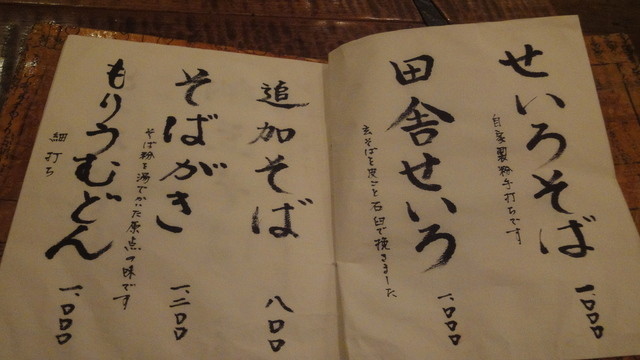 せいろそば
自家製粉手打ちです
一、〇〇〇
田舎せいろ
玄そばを皮ごと石臼で挽きました
一、〇〇〇
追加そば
八〇〇
そばがき
そば粉を湯でかいた原点の味です
一、二〇〇
もりうむどん
細打ち
一、〇〇〇